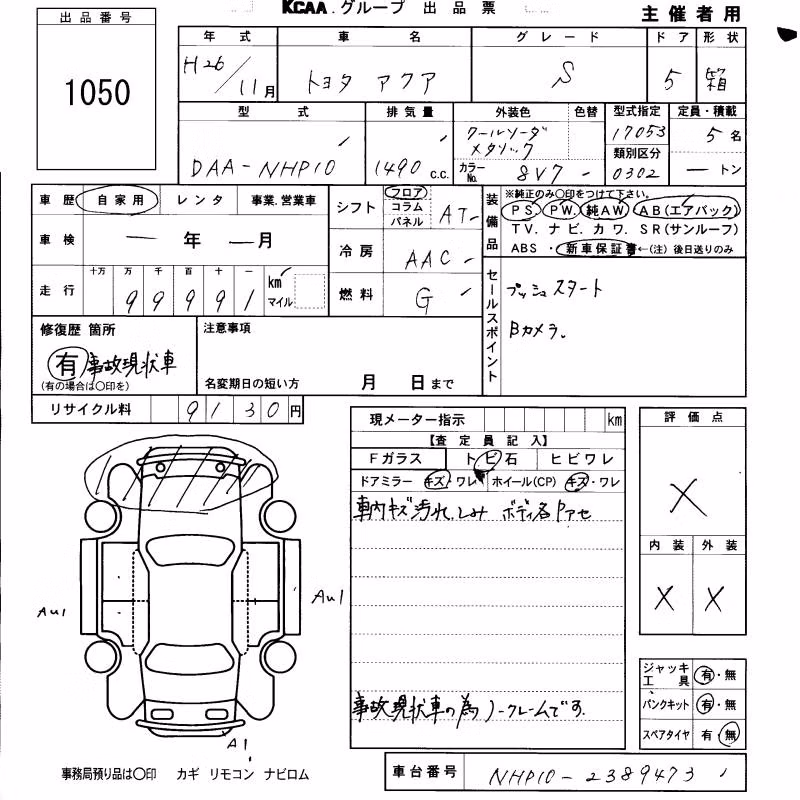 KCAA グループ 出品票
主催者用
出品番号
1050
年式 車名 グレード ドア 形状
H26/11月 トヨタ アクア S 5 箱
型式 排気量 外装色 色替 型式指定 定員・積載
DAA-NHP10 1490 c.c. クールソーダメタリック 17053 5名
カラーNo. 8V7 類別区分 0302 ートン
車歴 自家用 レンタ 事業.営業車
車検 ー年 ー月
走行 十万 万 千 百 十 一
99991 km マイル
シフト フロア コラム パネル AT
冷房 AAC
燃料 G
装備品 ※純正のみ〇印をつけて下さい。
PS. PW. 純AW. AB(エアバック)
TV. ナビ. カワ. SR(サンルーフ)
ABS ・ 新車保証書 ←(注) 後日送りのみ
セールスポイント
プッシュスタート
Bカメラ。
修復歴 箇所
有 事故現状車
(有の場合は〇印を)
注意事項
名変期日の短い方 月 日まで
リサイクル料 9130円
現メーター指示 km
【査定員記入】
Fガラス トビ石 ヒビワレ
ドアミラー キズ・ワレ ホイール(CP) キズ・ワレ
車内キズ汚れ.しみ ボディ各Pアセ
事故現状車の為ノークレームです.
評価点
X
内装 外装
X X
Au1
Au1
A1
ジャッキ工具 有・無
パンクキット 有・無
スペアタイヤ 有・無
事務局預り品は〇印 カギ リモコン ナビロム
車台番号 NHP10-2389473